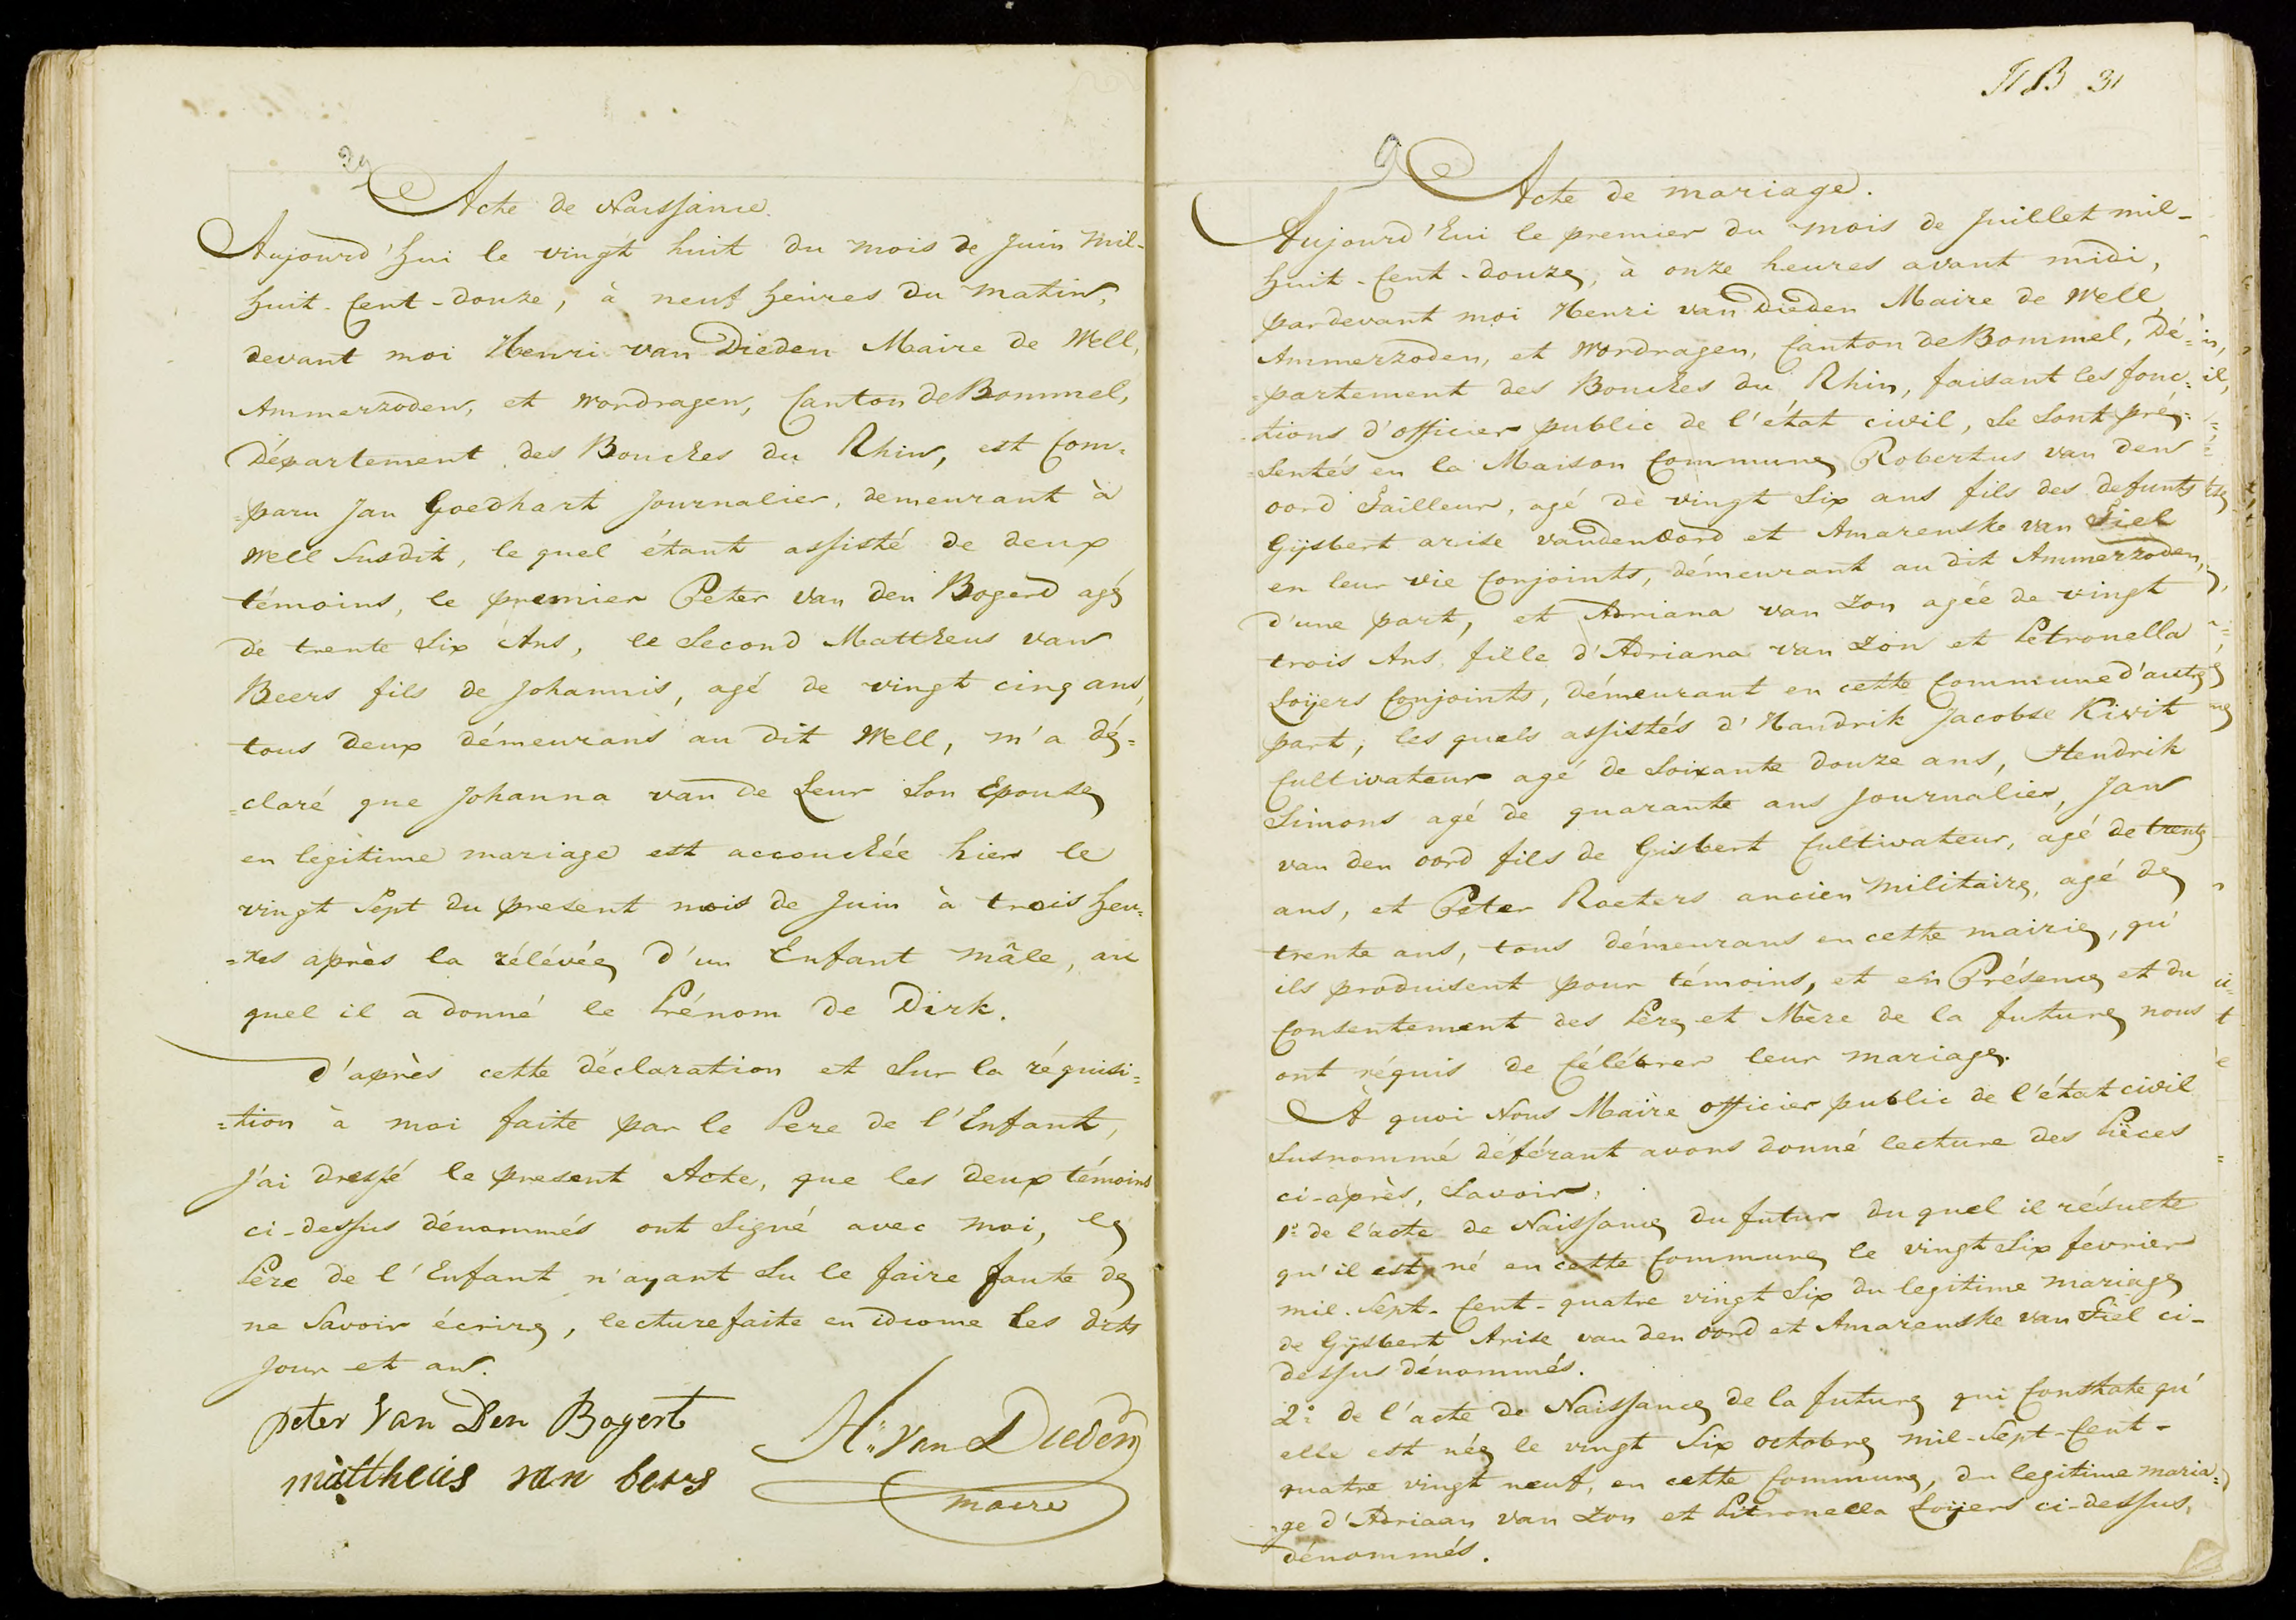 29
Acte de Naissance.
Aujourd'hui le vingt huit du mois de Juin mil-
huit-Cent-douze, à neuf heures du matin,
devant moi Henri van Dieden Maire de Well,
Ammerzoden, et Wordragen, Canton de Bommel,
Département des Bouches du Rhin, est Com-
=paru Jan Goedhart Journalier, demeurant à
Well susdit, le quel étant assisté de deux
témoins, le premier Peter van den Bogerd agé
de trente Six Ans, le Second Mattheus van
Beers fils de Johannis, agé de vingt cinq ans,
tous deux démeurans au dit Well, m'a dé=
=claré que Johanna van de Leur Son Epouse
en legitime mariage est accouchée hier le
vingt Sept du present mois de Juin à trois heu=
=res après la rélévée d'un Enfant mâle, au
quel il a donné le Prénom de Dirk.
d'après cette déclaration et Sur la réquisi=
=tion à moi faite par le Pere de l'Enfant,
J'ai dressé le present Acte, que les deux témoins
ci-dessus dénommés ont Signé avec moi, le
Père de l'Enfant n'ayant Su le faire faute de
ne Savoir écrire, lecture faite en idiome les dits
Jour et an.
peter Van Den Bogert
mattheus van beers
H: van Dieden
maire
31
9
Acte de mariage.
Aujourd'hui le premier du mois de Juillet mil-
huit-Cent-douze, à onze heures avant midi,
pardevant moi Henri van Dieden Maire de Well
Ammerzoden, et Wordragen, Canton de Bommel, Dé=
=partement des Bouches du Rhin, faisant les fonc=
=tions d'officier public de l'état civil, Se Sont pré=
=Sentés en la Maison Commune Robertus van den
oord Tailleur, agé de vingt Six ans fils des defunts
Gijsbert arise vanden Oord et Amarenske van Tiel
en leur vie Conjoints, démeurant au dit Ammerzoden,
d'une part, et Adriana van Zon agée de vingt
trois Ans, fille d'Adriana van Zon et Petronella
Loijers Conjoints, démeurant en cette Commune d'autre
part, les quels assistés d'Handrik Jacobse Kivit
Cultivateur agé de Soixante douze ans, Hendrik
Simons agé de quarante ans Journalier, Jan
van den oord fils de Gisbert Cultivateur, agé de trente
ans, et Peter Roeters ancien militaire, agé de
trente ans, tous démeurans en cette mairie, qu'
ils produisent pour témoins, et en Présence et du
Consentement des Père et Mère de la future nous
ont réquis de Célébrer leur mariage.
A quoi Nous Maire officier public de l'état civil
Susnommé déférant avons donné lecture des Pièces
ci-après, Savoir:
1º: de l'acte de Naissance du futur du quel il résulte
qu'il est né en cette Commune le vingt Six fevrier
mil-Sept-Cent-quatre vingt Six du legitime mariage
de Gijsbert Arise van den oord et Amarenske van Tiel ci-
dessus dénommés.
2º: de l'acte de Naissance de la future qui Constate qu'
elle est née le vingt Six octobre mil-Sept-Cent-
quatre vingt neuf, en cette Commune, du legitime maria=
=ge d'Adriaan van Zon et Pitronella Loijers ci-dessus,
dénommés.